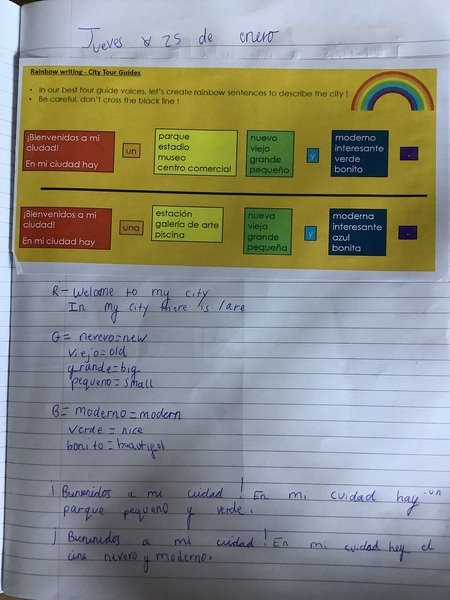 Jueves 25 de enero
Rainbow writing - City Tour Guides
• In our best tour guide voices, let's create rainbow sentences to describe the city !
• Be careful, don't cross the black line !
¡Bienvenidos a mi
ciudad!
En mi ciudad hay
un
parque
estadio
museo
centro comercial
nuevo
viejo
grande
pequeño
y
moderno
interesante
verde
bonito
.
¡Bienvenidos a mi
ciudad!
En mi ciudad hay
una
estación
galería de arte
piscina
nueva
vieja
grande
pequeña
y
moderna
interesante
azul
bonita
.
R - Welcome to my city
In my city there is /are
G = nevevo = new
viejo = old
grande = big
pequeno = small
B = moderno = modern
verde = nice
bonito = beautiful
¡ Bienvenidos a mi cuidad ! En mi cuidad hay un
parque pequeno y verde.
¡ Bienvenidos a mi cuidad ! En mi cuidad hey el
cine nevevo y moderno.